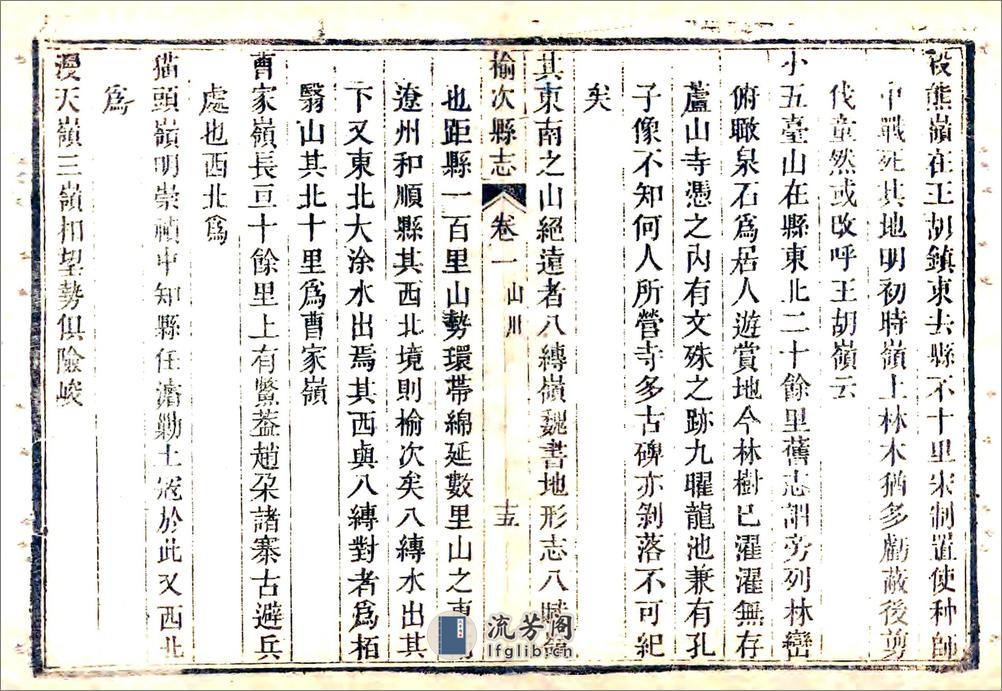 殺熊嶺在王胡鎮東去縣不十里宋制置使种師
中戰死其地明初時嶺上林木猶多虧蔽後剪
伐童然或改呼王胡嶺云
小五臺山在縣東北二十餘里舊志謂旁列林巒
俯瞰泉石爲居人遊賞地今林樹已濯濯無存
蘆山寺憑之內有文殊之跡九曜龍池兼有孔
子像不知何人所營寺多古碑亦剝落不可紀
矣
其東南之山絕遠者八縛嶺魏書地形志八賦嶺
榆次縣志 卷一 山川 十五
也距縣一百里山勢環帶綿延數里山之東
遼州和順縣其西北境則榆次矣八縛水出其
下又東北大涂水出焉其西與八縛對者爲栢
翳山其北十里爲曹家嶺
曹家嶺長亘十餘里上有鱉蓋趙朶諸寨古避兵
處也西北爲
猫頭嶺明崇禎中知縣任濬勦土寇於此又西北
爲
漫天嶺三嶺相望勢俱險峻
流芳閣
lfglib.cn